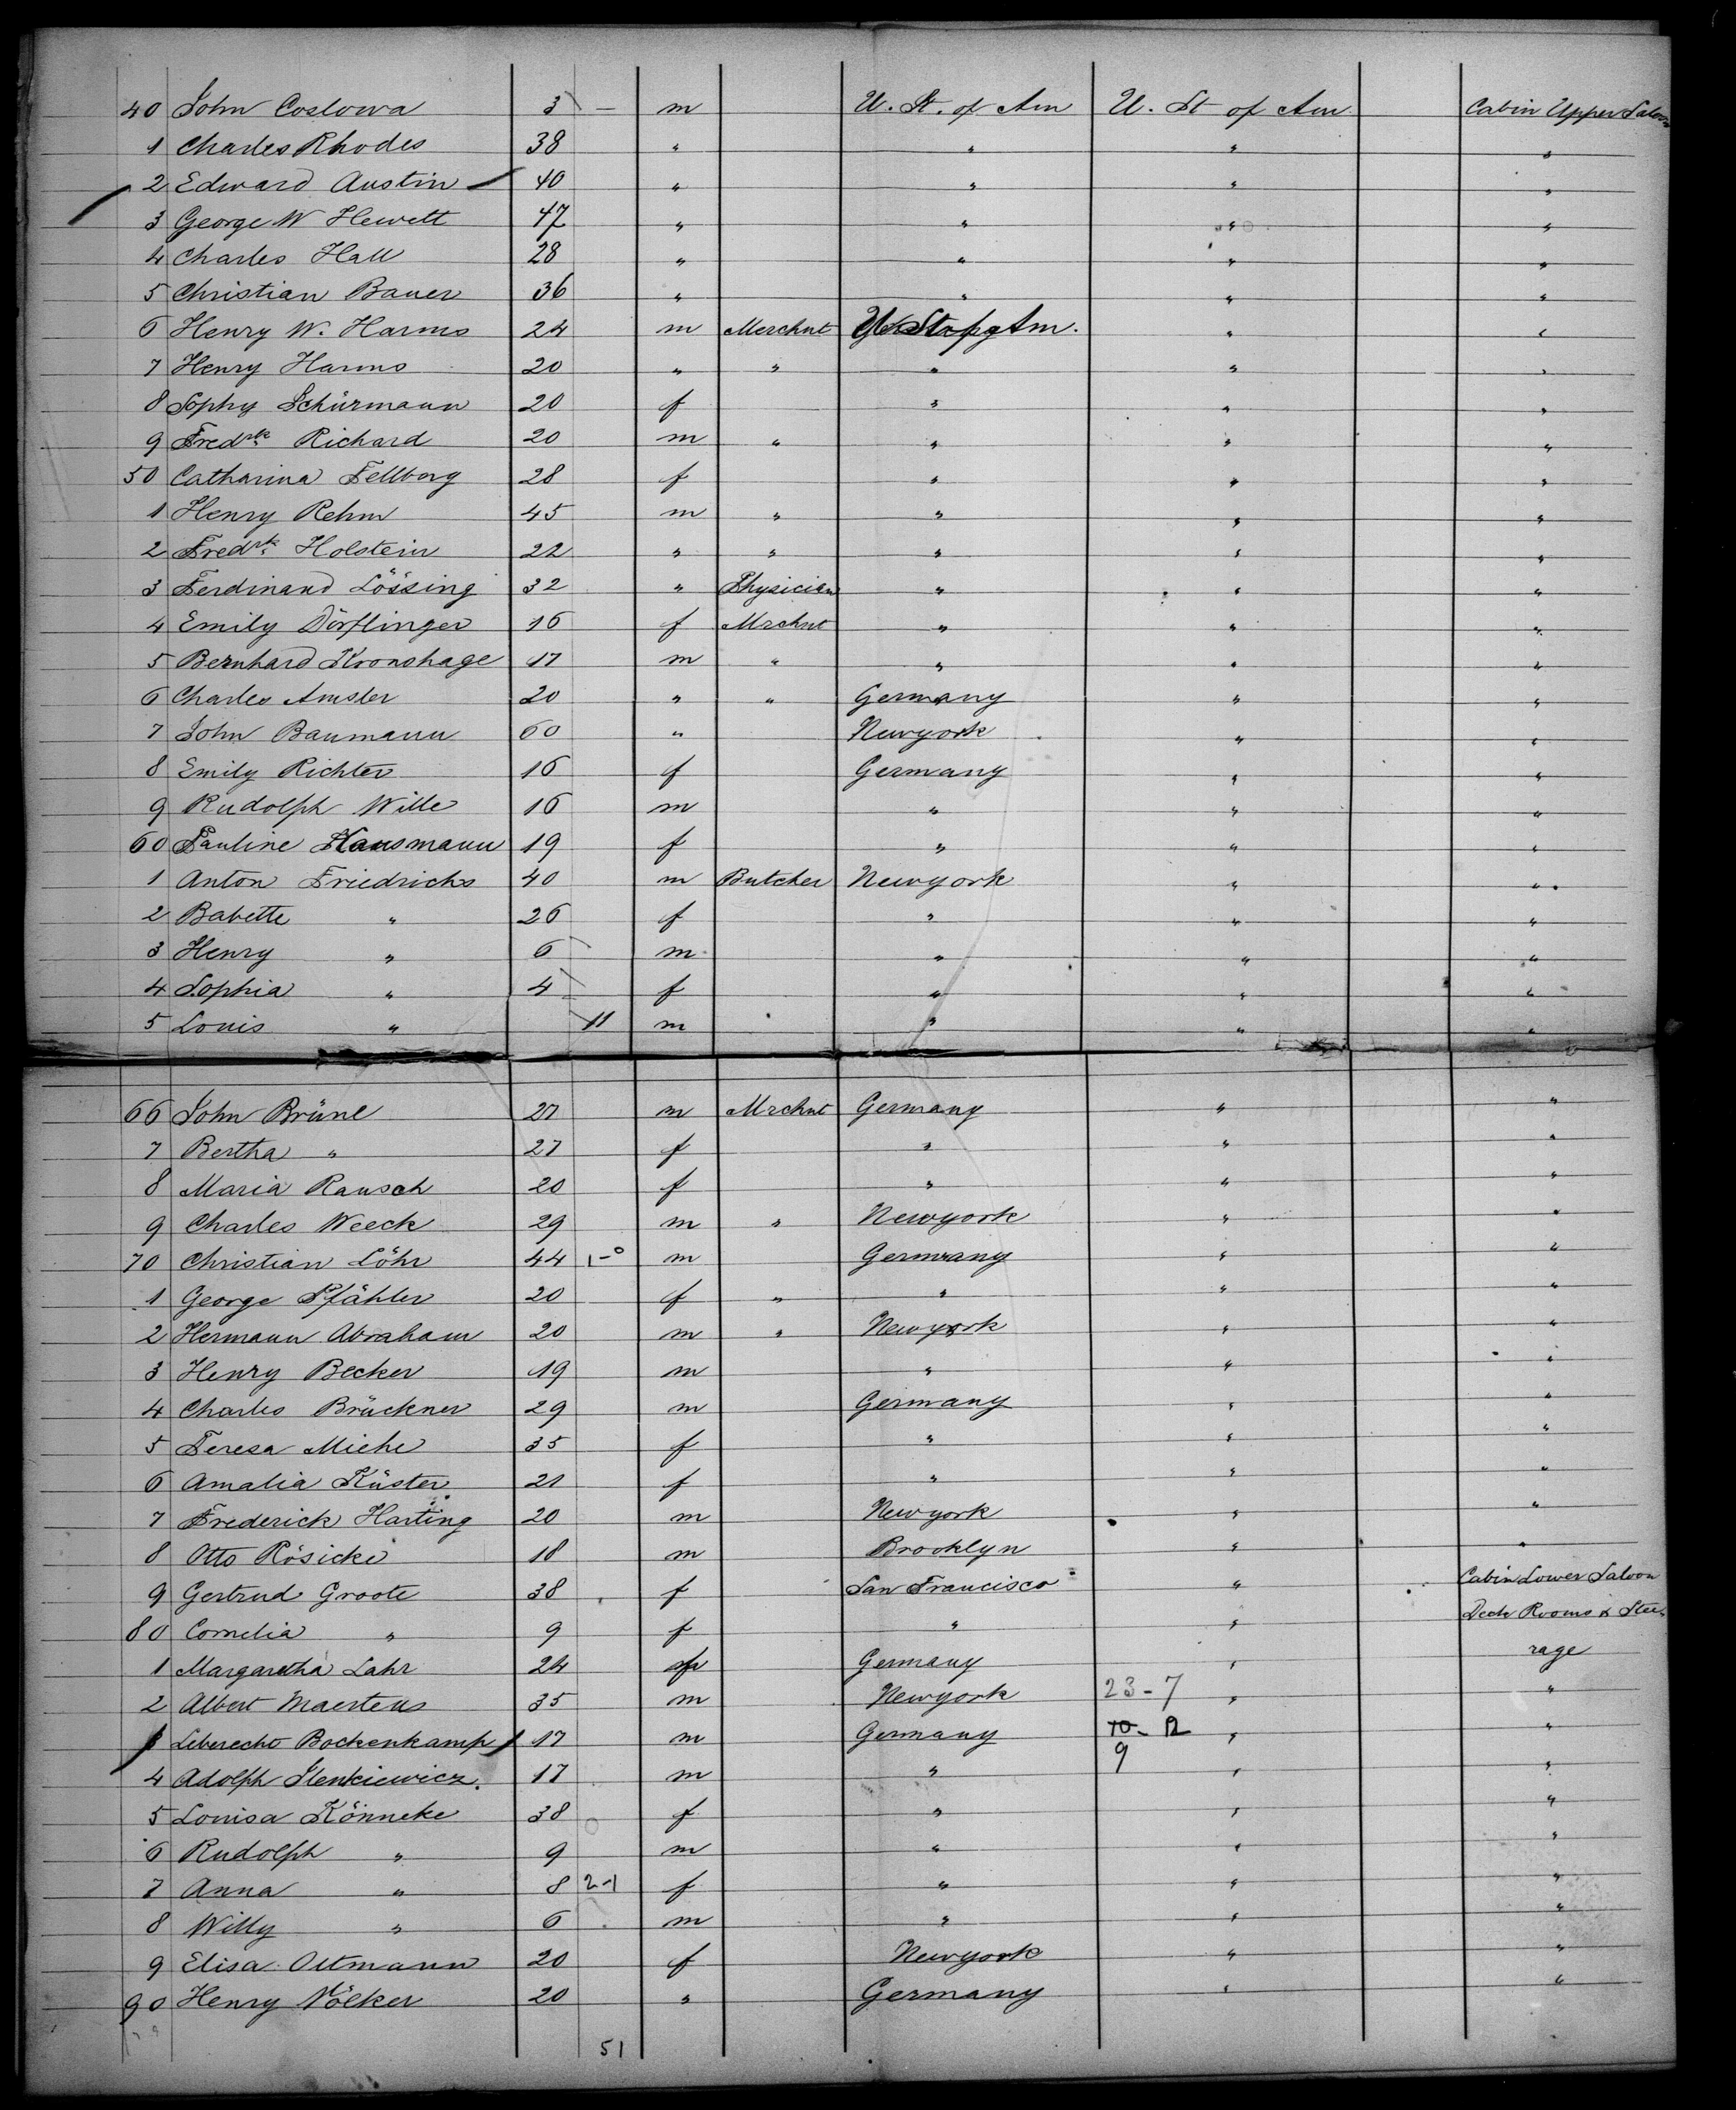 40 John Coslowa 3 — m U. St. of Am U. St of Am Cabin Upper Saloon
1 Charles Rhodes 38 " " " "
2 Edward Austin 40 " " " "
3 George W Hewett 47 " " " "
4 Charles Hall 28 " " " "
5 Christian Bauer 36 " " " "
6 Henry W. Harms 24 m Merchnt U. St of Am. " "
7 Henry Harms 20 " " " " "
8 Sophy Schürmann 20 f " " "
9 Fredrk Richard 20 m " " " "
50 Catharina Fellborg 28 f " " "
1 Henry Rehm 45 m " " " "
2 Fredrk Holstein 22 " " " " "
3 Ferdinand Lössing 32 " Physician " " "
4 Emily Dörflinger 16 f Mrchnt " " "
5 Bernhard Kronshage 17 m " " " "
6 Charles Amsler 20 " " Germany " "
7 John Baumann 60 " Newyork " "
8 Emily Richter 16 f Germany " "
9 Rudolph Wille 16 m " " "
60 Pauline Hausmann 19 f " " "
1 Anton Friedrichs 40 m Butcher Newyork " "
2 Babette " 26 f " " "
3 Henry " 6 m " " "
4 Sophia " 4 f " " "
5 Louis " 11 m " " "
66 John Brüne 27 m Mrchnt Germany " "
7 Bertha " 27 f " " "
8 Maria Rausch 20 f " " "
9 Charles Weeck 29 m " Newyork " "
70 Christian Löhr 44 1-0 m Germany " "
1 George Pfähler 20 f " " " "
2 Hermann Abraham 20 m " Newyork " "
3 Henry Becker 19 m " " "
4 Charles Brückner 29 m Germany " "
5 Teresa Miehe 35 f " " "
6 Amalia Küster 21 f " " "
7 Frederick Harting 20 m Newyork " "
8 Otto Rösicke 18 m Brooklyn " "
9 Gertrud Groote 38 f San Francisco " Cabin Lower Saloon
80 Cornelia " 9 f " " Deck Rooms & Stee-
1 Margaretha Lahr 24 f Germany " rage
2 Albert Maertens 35 m Newyork 23-7 " "
3 Leberecho Bockenkamp 17 m Germany 10-12 " "
9
4 Adolph Slenkiewicz. 17 m " " "
5 Louisa Könneke 38 f " " "
6 Rudolph " 9 m " " "
7 Anna " 8 2-1 f " " "
8 Willy " 6 m " " "
9 Elisa Oltmann 20 f Newyork " "
90 Henry Völker 20 " Germany " "
51